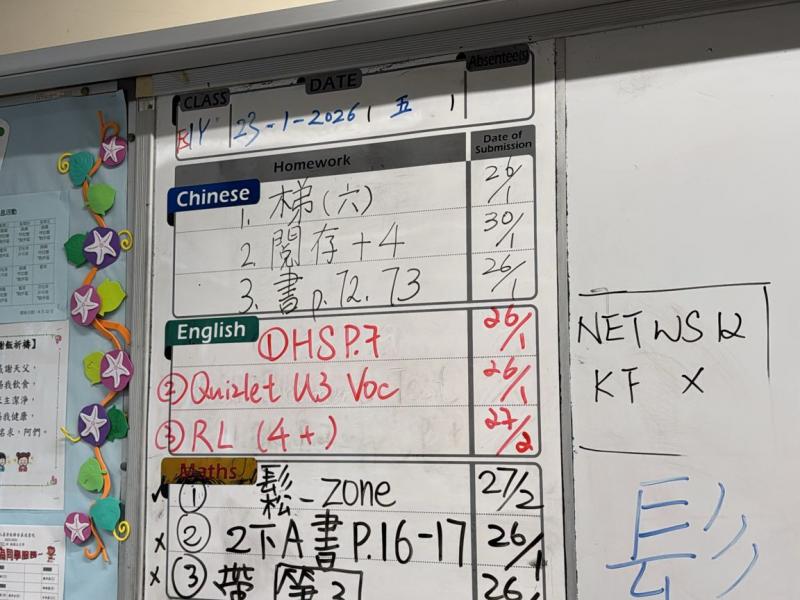 CLASS DATE Absentee(s)
23-1-2026 (五)
Homework Date of Submission
Chinese
1. 梯(六) 26/1
2. 閱存+4 30/1
3. 書p.72.73 26/1
English
① HS P.7 26/1
② Quizlet U3 Voc 26/1
③ RL (4+) 27/2
Maths
✓ ① 鬆-zone 27/2
x ② 2下A書P.16-17 26/1
x ③ 帶 26
NET WS 12
KF X
感謝天父,
主潔淨,
我健康,
阿們。